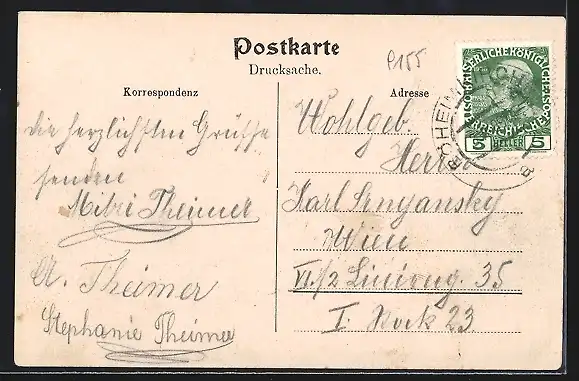 Postkarte
Drucksache.
P155
Korrespondenz
Adresse
die herzlichsten Grüsse
senden
Mitzi Theimer
A. Theimer
Stephanie Theimer
Wohlgeb
Herrn
Karl
Wien
VI./2 35
I. Stock 23
KAISERLICHE KÖNIGLICHE ÖSTERREICHISCHE
5 HELLER 5